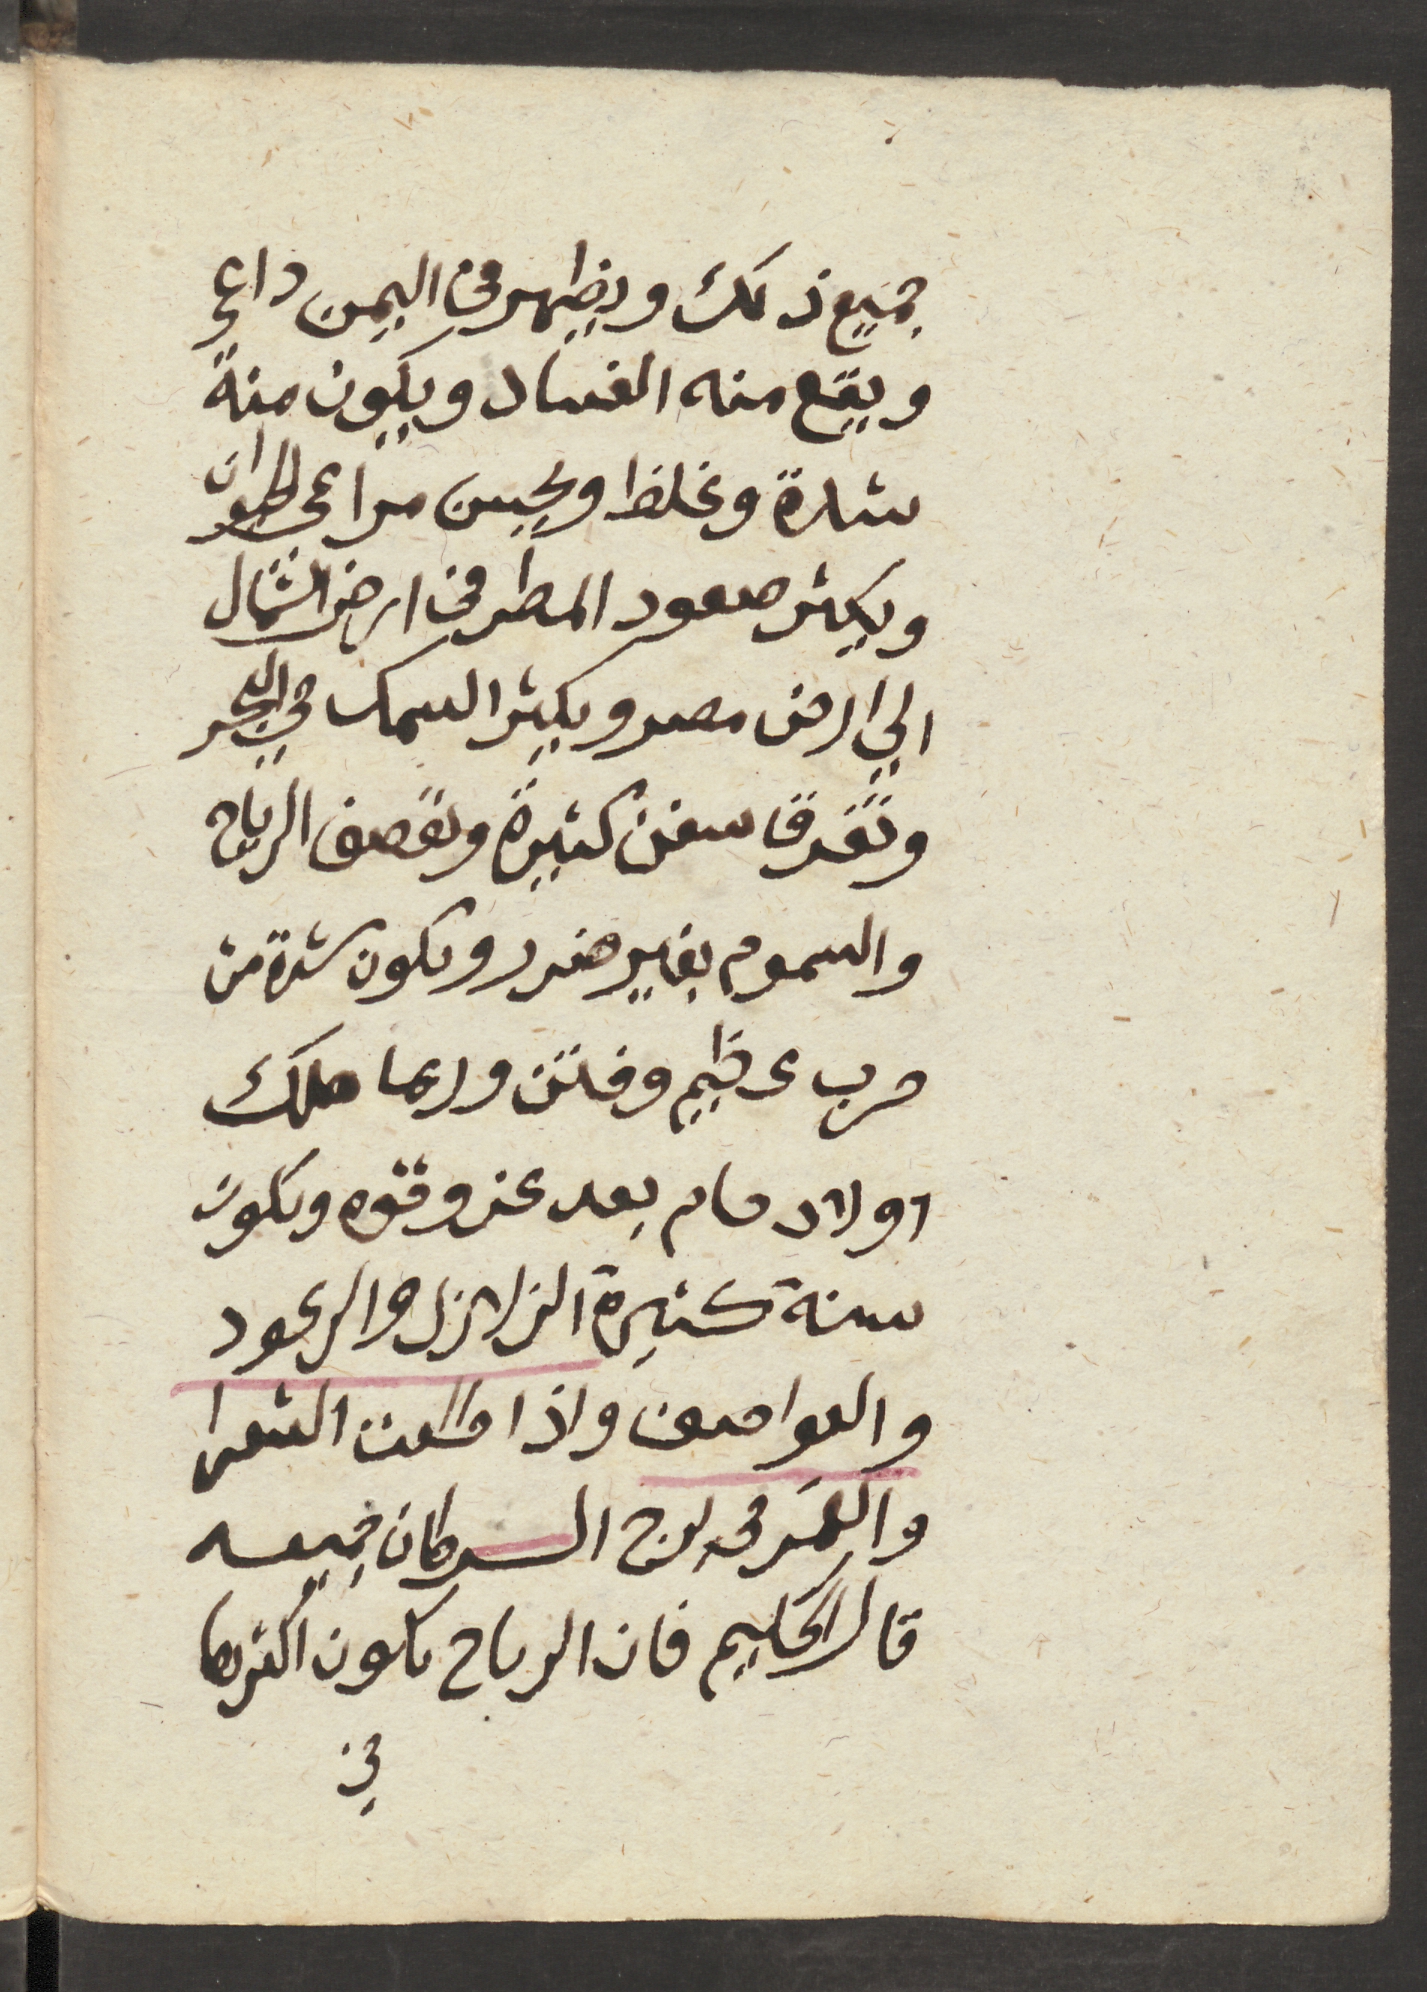 جميع ذلك ويظهر في اليمن داعي
ويقع منه الفساد ويكون منة
شدة وغلظ ويحسن مراعي الحيوان
ويكثر صعود المطر في ارض الشمال
الي ارض مصر ويكثر السمك في البحر
وتغرقا سفن كثيرة وتعصف الرياح
والسموم بغير ضرر وتكون شدة من
حرب عظيم وفتن وربما هلك
اولاد حام بعد عز وقوه وتكون
سنة كثيرة الزلازل والرعود
والعواصف واذا طلعت الشعرا
والقمر في برج السرطان جميعه
قال الحكيم فان الرياح تكون اكثرها
في